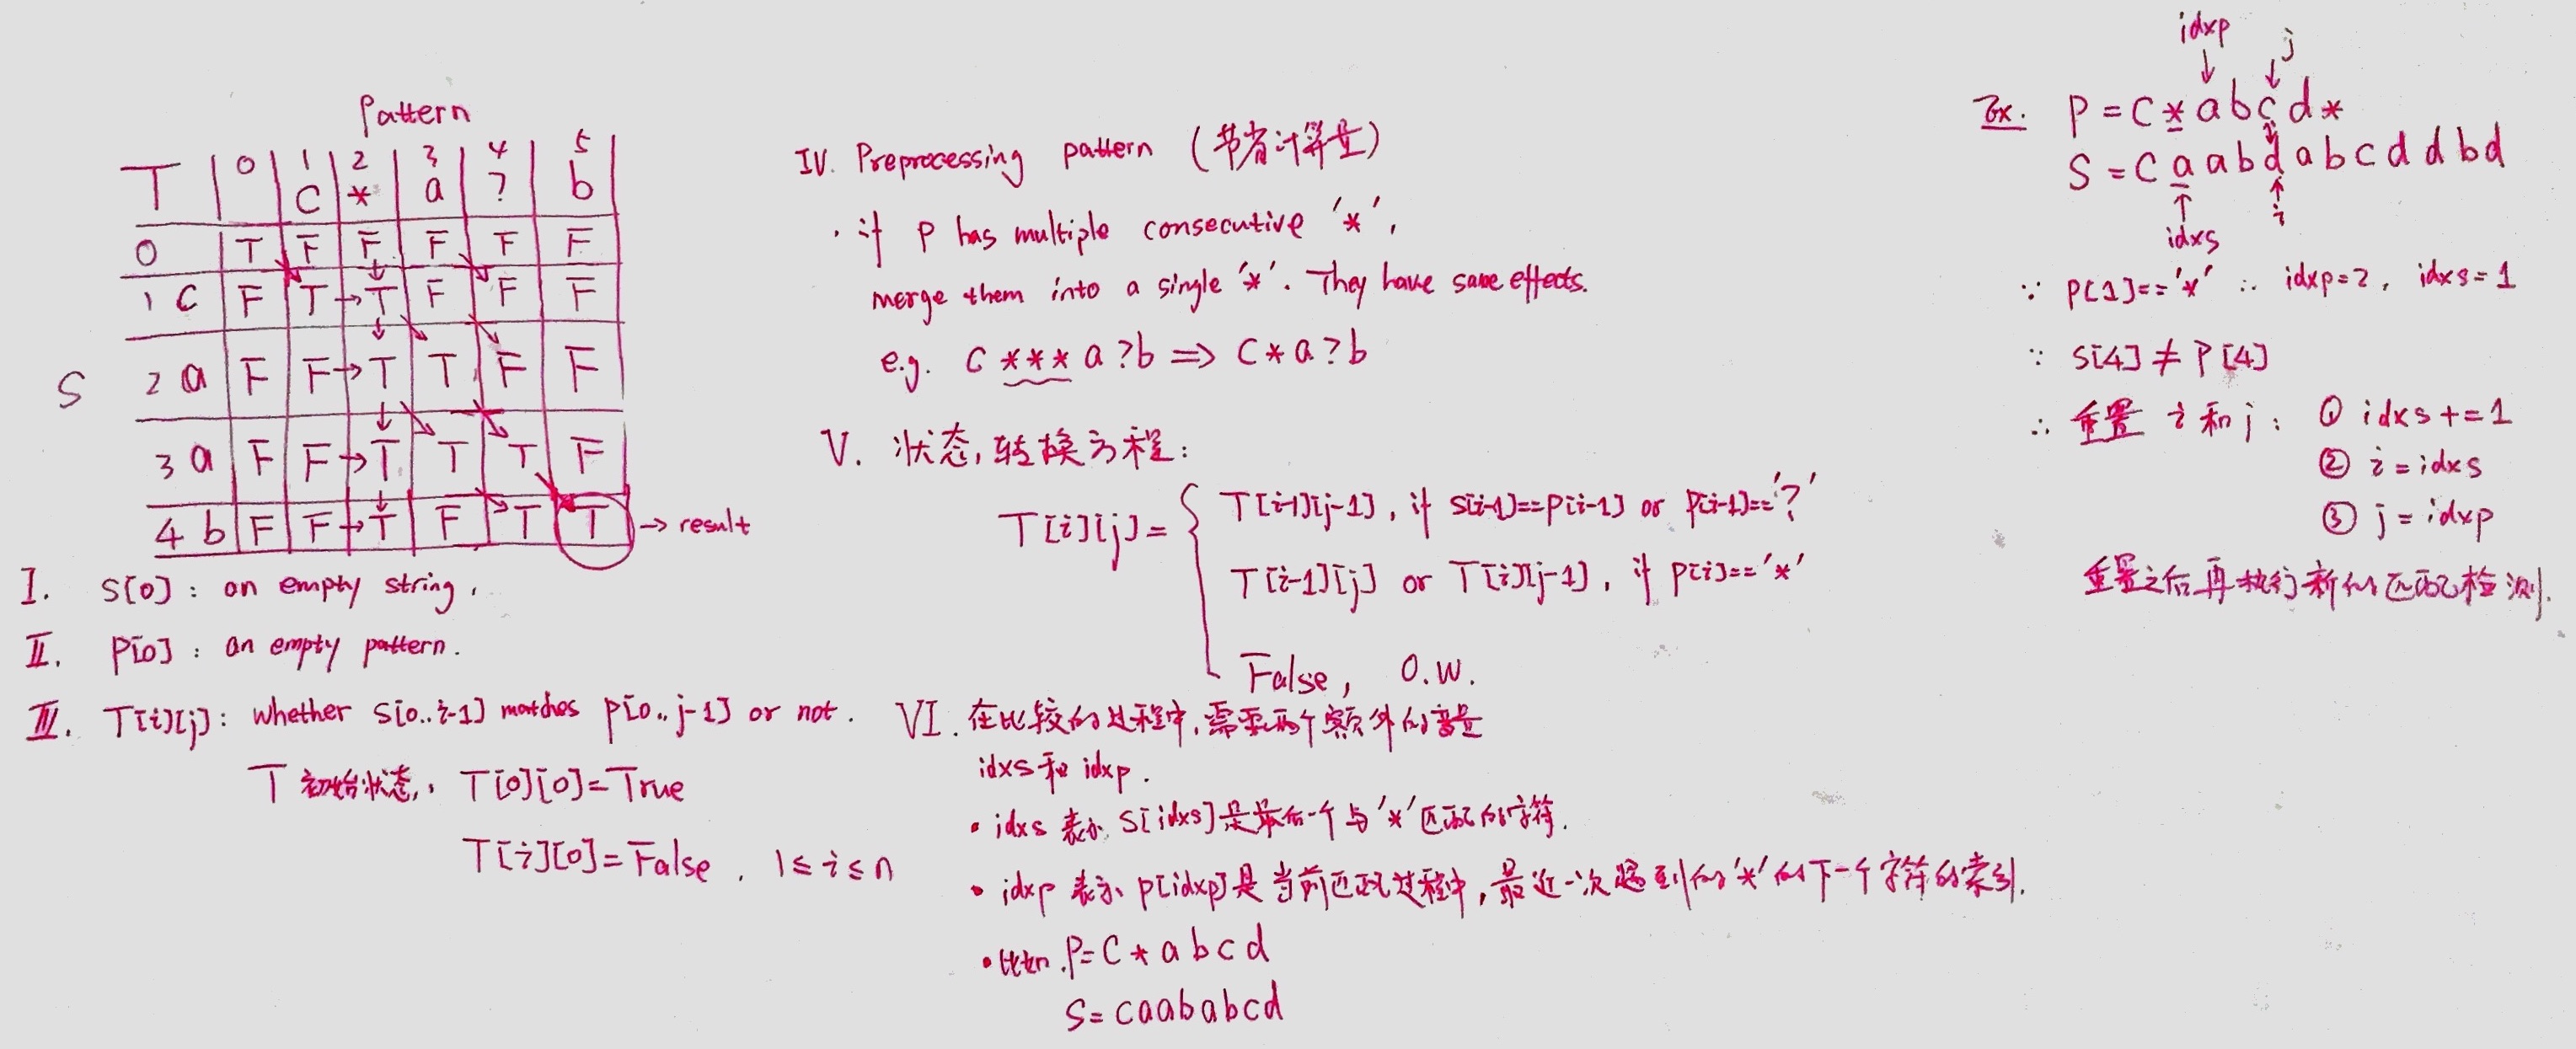 Pattern
T | 0 | 1 C | 2 * | 3 a | 4 ? | 5 b
0 | T | F | F | F | F | F
1 C | F | T → T | F | F | F
S
2 a | F | F → T | T | F | F
3 a | F | F → T | T | T | F
4 b | F | F → T | F | T | T → result
I. S[0] : an empty string,
II. P[0] : an empty pattern.
III. T[i][j] : whether S[0..i-1] matches P[0..j-1] or not.
T 初始状态, T[0][0]=True
T[i][0]=False, 1≤i≤n
IV. Preprocessing pattern (节省计算量)
· if P has multiple consecutive '*',
merge them into a single '*'. They have same effects.
e.g. C***a?b ⇒ C*a?b
V. 状态转换方程:
T[i][j]= { T[i-1][j-1], if S[i-1]==P[i-1] or P[i-1]=='?'
T[i-1][j] or T[i][j-1], if P[i]=='*'
False, O.W.
VI. 在比较的过程中,需要两个额外的变量
idxs 和 idxp.
• idxs 表示 S[idxs]是最后一个与'*'匹配的字符.
• idxp 表示 P[idxp]是当前匹配过程中,最近一次遇到的'*'的下一个字符的索引.
• 比如. P=C*abcd
S=caababcd
idxp j
Ex. P=C*abcd*
S=Caabdabcddbd
idxs i
∵ P[1]=='*' ∴ idxp=2, idxs=1
∵ S[4]≠P[4]
∴ 重置 i 和 j: ① idxs+=1
② i=idxs
③ j=idxp
重置之后再执行新的匹配检测.